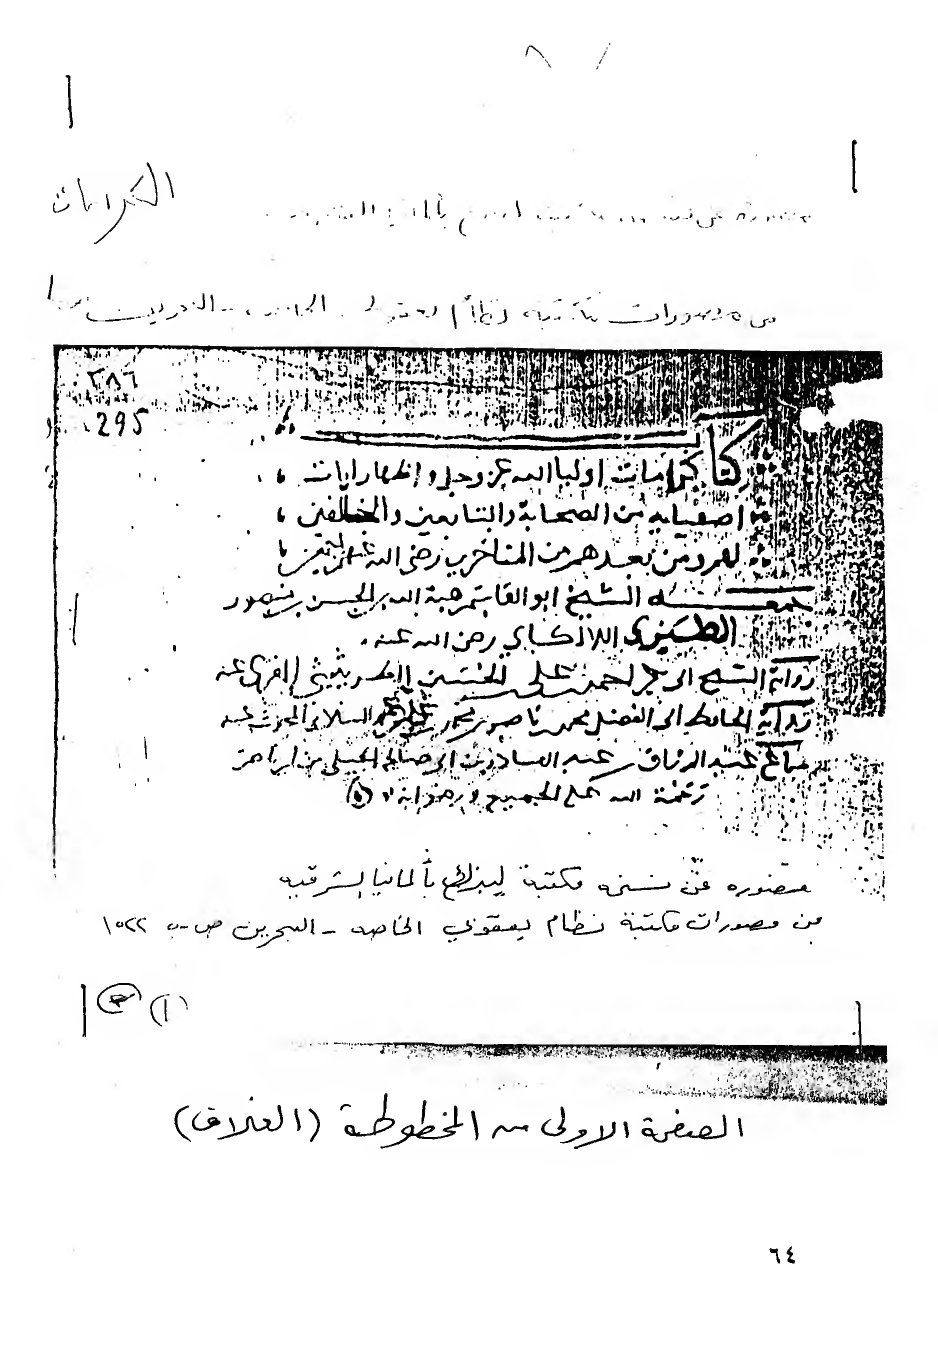 الكرامات
من مصورات مكتبة نظام يعقوبي الخاصه - البحرين
٢٨٦
295
كتاب
كرامات اوليا الله عز وجل واظهار ايات
اصفيايه من الصحابة والتابعين والخالفين
لهم ومن بعدهم من المتاخرين رضى الله عنهم اجمعين
جمعه الشيخ ابو القاسم هبة الله بن الحسن بن منصور
الطبري اللالكاي رضى الله عنه
رواية الشيخ ابي بكر احمد بن على بن الحسين الطريثيثي المقرى عنه
رواية الحافظ ابى الفضل محمد بن ناصر بن محمد بن على بن عمر السلامى المحدث عنه
سماع عبد الرزاق بن عبد القادر بن ابى صالح الجيلى من ابن ناصر
رحمة الله على الجميع ورضوانه
مصوره عن نسخه مكتبة ليبزك بألمانيا الشرقيه
من مصورات مكتبة نظام يعقوبي الخاصه - البحرين ص.ب ١٥٢٢
(١)
الصفحة الاولى من المخطوطة (الغلاف)
٦٤